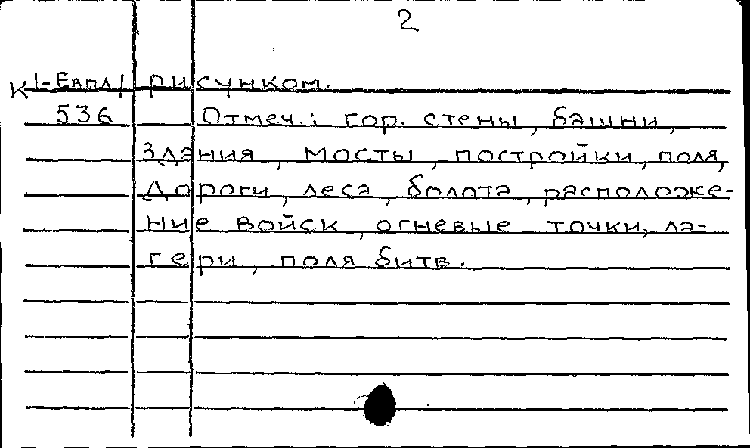 2
К 1-Евпл/ рисунком.
536 Отмеч.: гор. стены, башни,
здания, мосты, постройки, поля,
дороги, леса, болота, расположе-
ние войск, огневые точки, ла-
гери, поля битв.